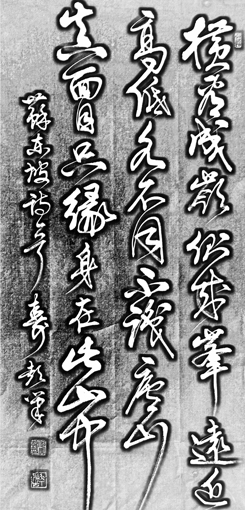 横看成嶺側成峯遠近
高低各不同不識廬山
真面目只緣身在此山中
蘇東坡詩